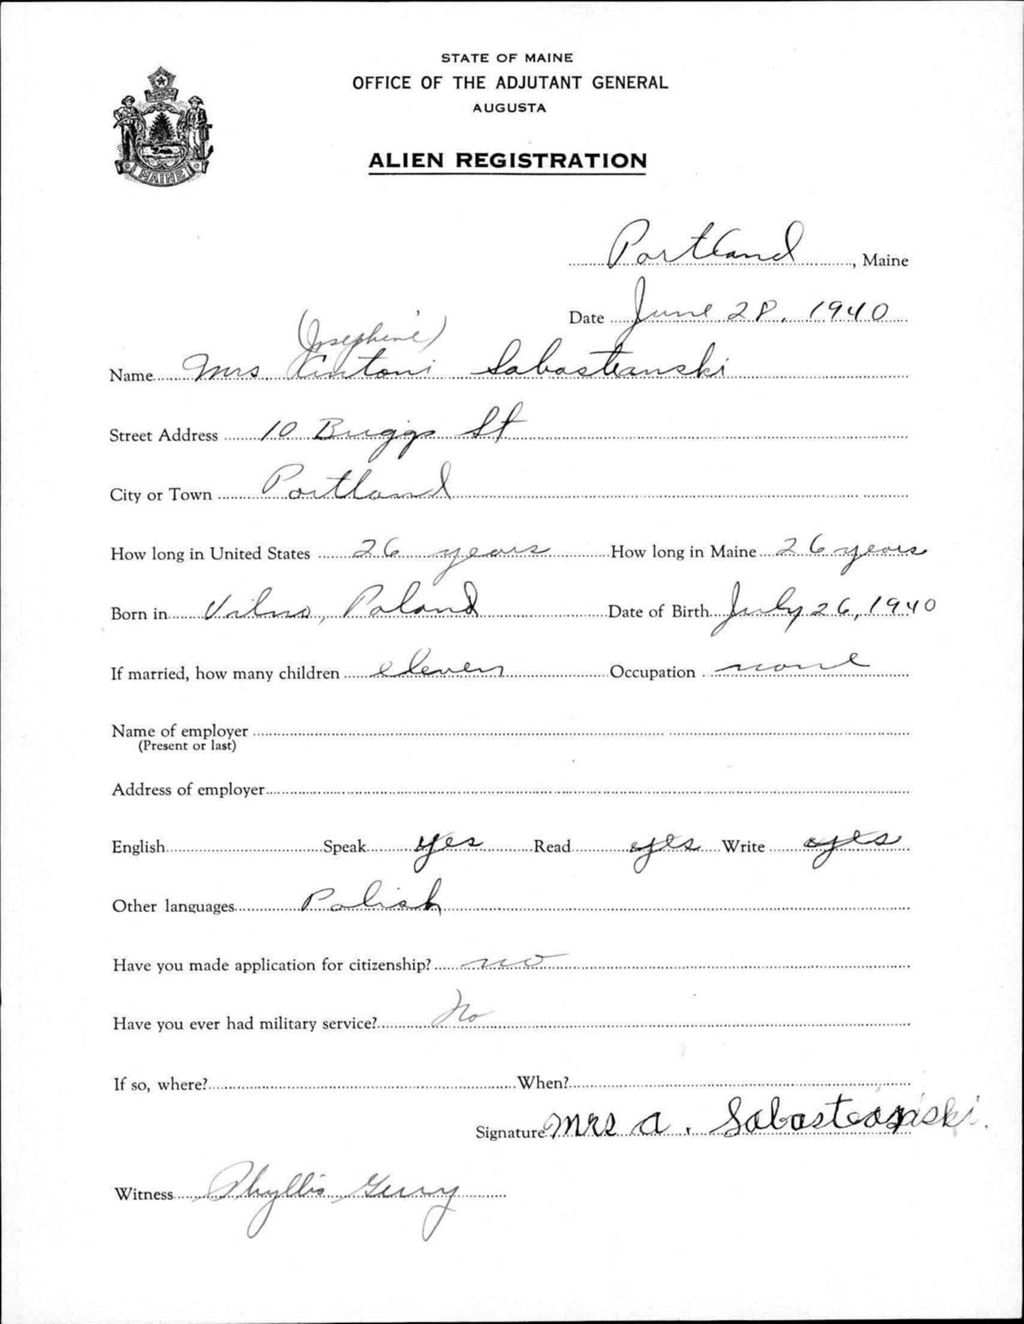 STATE OF MAINE
OFFICE OF THE ADJUTANT GENERAL
AUGUSTA
MAINE
ALIEN REGISTRATION
Portland, Maine
Date June 28, 1940
(Josephine)
Name Mrs Antoni Sabasteanski
Street Address 10 Briggs St
City or Town Portland
How long in United States 26 years How long in Maine 26 years
Born in Vilno, Poland Date of Birth July 26, 1940
If married, how many children eleven Occupation none
Name of employer
(Present or last)
Address of employer
English Speak yes Read yes Write yes
Other languages Polish
Have you made application for citizenship? no
Have you ever had military service? No
If so, where? When?
Signature Mrs A. Sabasteanski.
Witness Phyllis Gerry